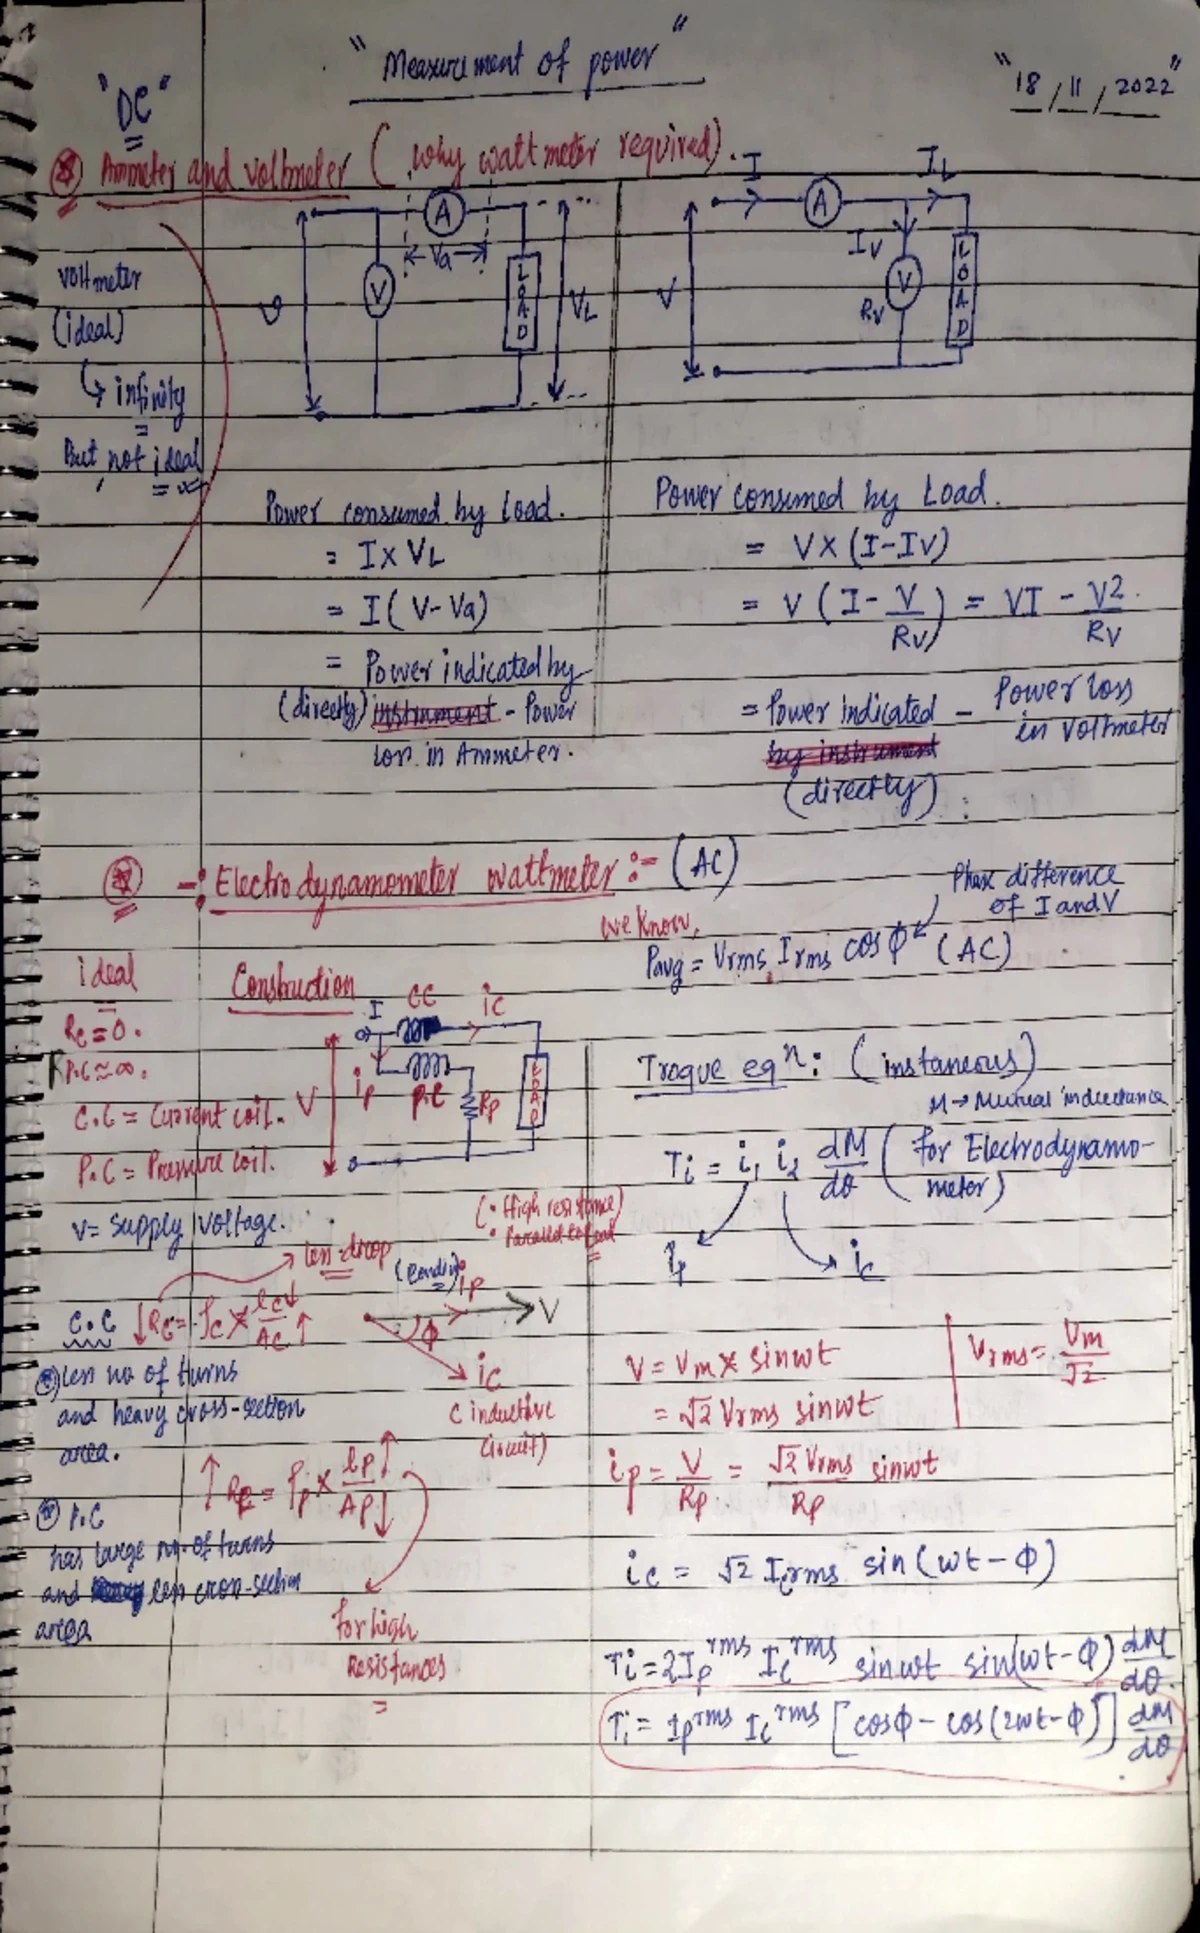 "Measurement of power"
"18/11/2022"
"DC"
Ammeter and voltmeter (why wattmeter required).
voltmeter
(ideal)
↳ infinity
But not ideal
V
V
A
Va
LOAD
VL
I
A
IL
IV
V
V
RV
LOAD
Power consumed by Load.
= I x VL
= I (V-Va)
= Power indicated by
(directly) instrument - Power
loss in Ammeter.
Power consumed by Load.
= V x (I-IV)
= V (I - V/RV) = VI - V2/RV
= Power indicated - Power loss
in voltmeter
by instrument
(directly)
-: Electrodynamometer wattmeter :- (AC)
we know,
Phase difference
of I and V
Pavg = Vrms Irms cos ϕ (AC)
ideal
Rc = 0.
RP.C ≃ ∞.
C.C = Current coil.
P.C = Pressure coil.
V = supply voltage.
Consbruction
I CC ic
V ip P.C Rp LOAD
(• High resistance)
• Parallel to load
Troque eqn: (instaneous)
M → Mutual inductance
Ti = i1 i2 dM/dθ (for Electrodynamo-
meter)
ip ic
→ less drop
C.C ↓Rc = ρc x lc↓/Ac↑
less no of turns
and heavy cross-section
area.
ip V
ϕ
ic
C inductive
circuit)
↑ Rp = ρp x lp↑/Ap↓
P.C
has large no. of turns
and less cross-section
area
for high
Resistances
V = Vm x sinωt
= √2 Vrms sinωt
Vrms = Vm/√2
ip = V/Rp = √2 Vrms/Rp sinωt
ic = √2 Icrms sin(ωt - ϕ)
Ti = 2Ip^rms Ic^rms sinωt sin(ωt-ϕ) dM/dθ
Ti = Ip^rms Ic^rms [cosϕ - cos(2ωt-ϕ)] dM/dθ